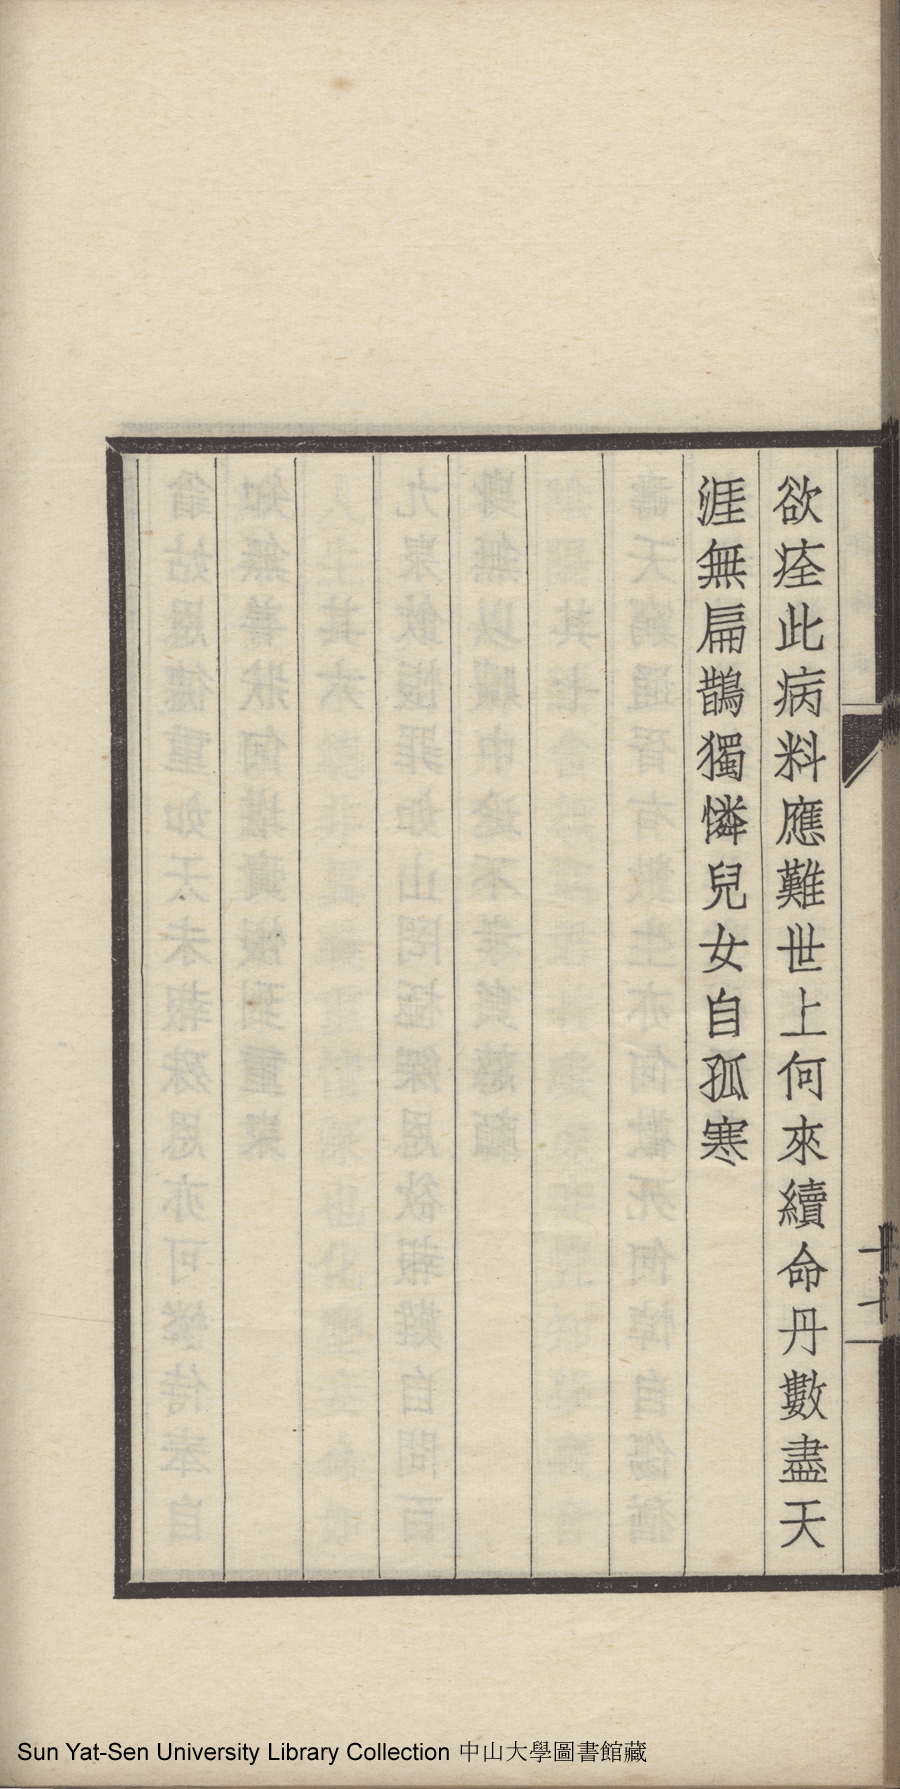 欲痊此病料應難世上何來續命丹數盡天
涯無扁鵲獨憐兒女自孤寒
Sun Yat-Sen University Library Collection 中山大學圖書館藏